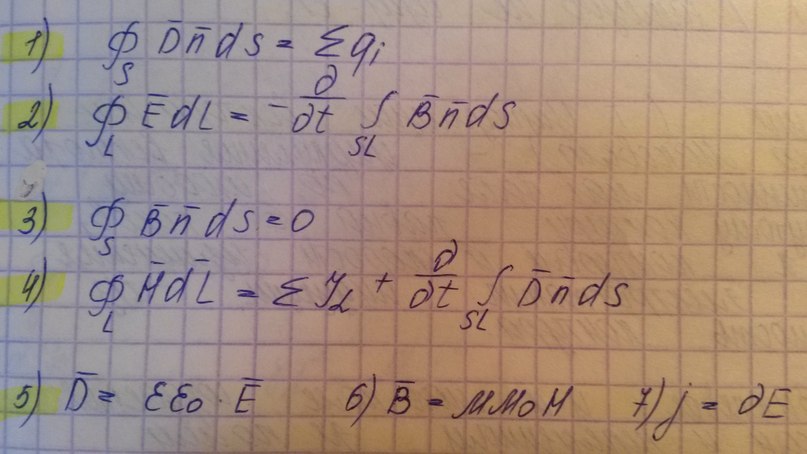 1) ∮_S D̄ n̄ ds = Σ q_i
2) ∮_L Ē dL = - ∂/∂t ∫_SL B̄ n̄ dS
3) ∮_S B̄ n̄ ds = 0
4) ∮_L H̄ dL̄ = Σ J_L + ∂/∂t ∫_SL D̄ n̄ ds
5) D̄ = εε₀ · Ē 6) B̄ = μμ₀H 7) j = ∂E